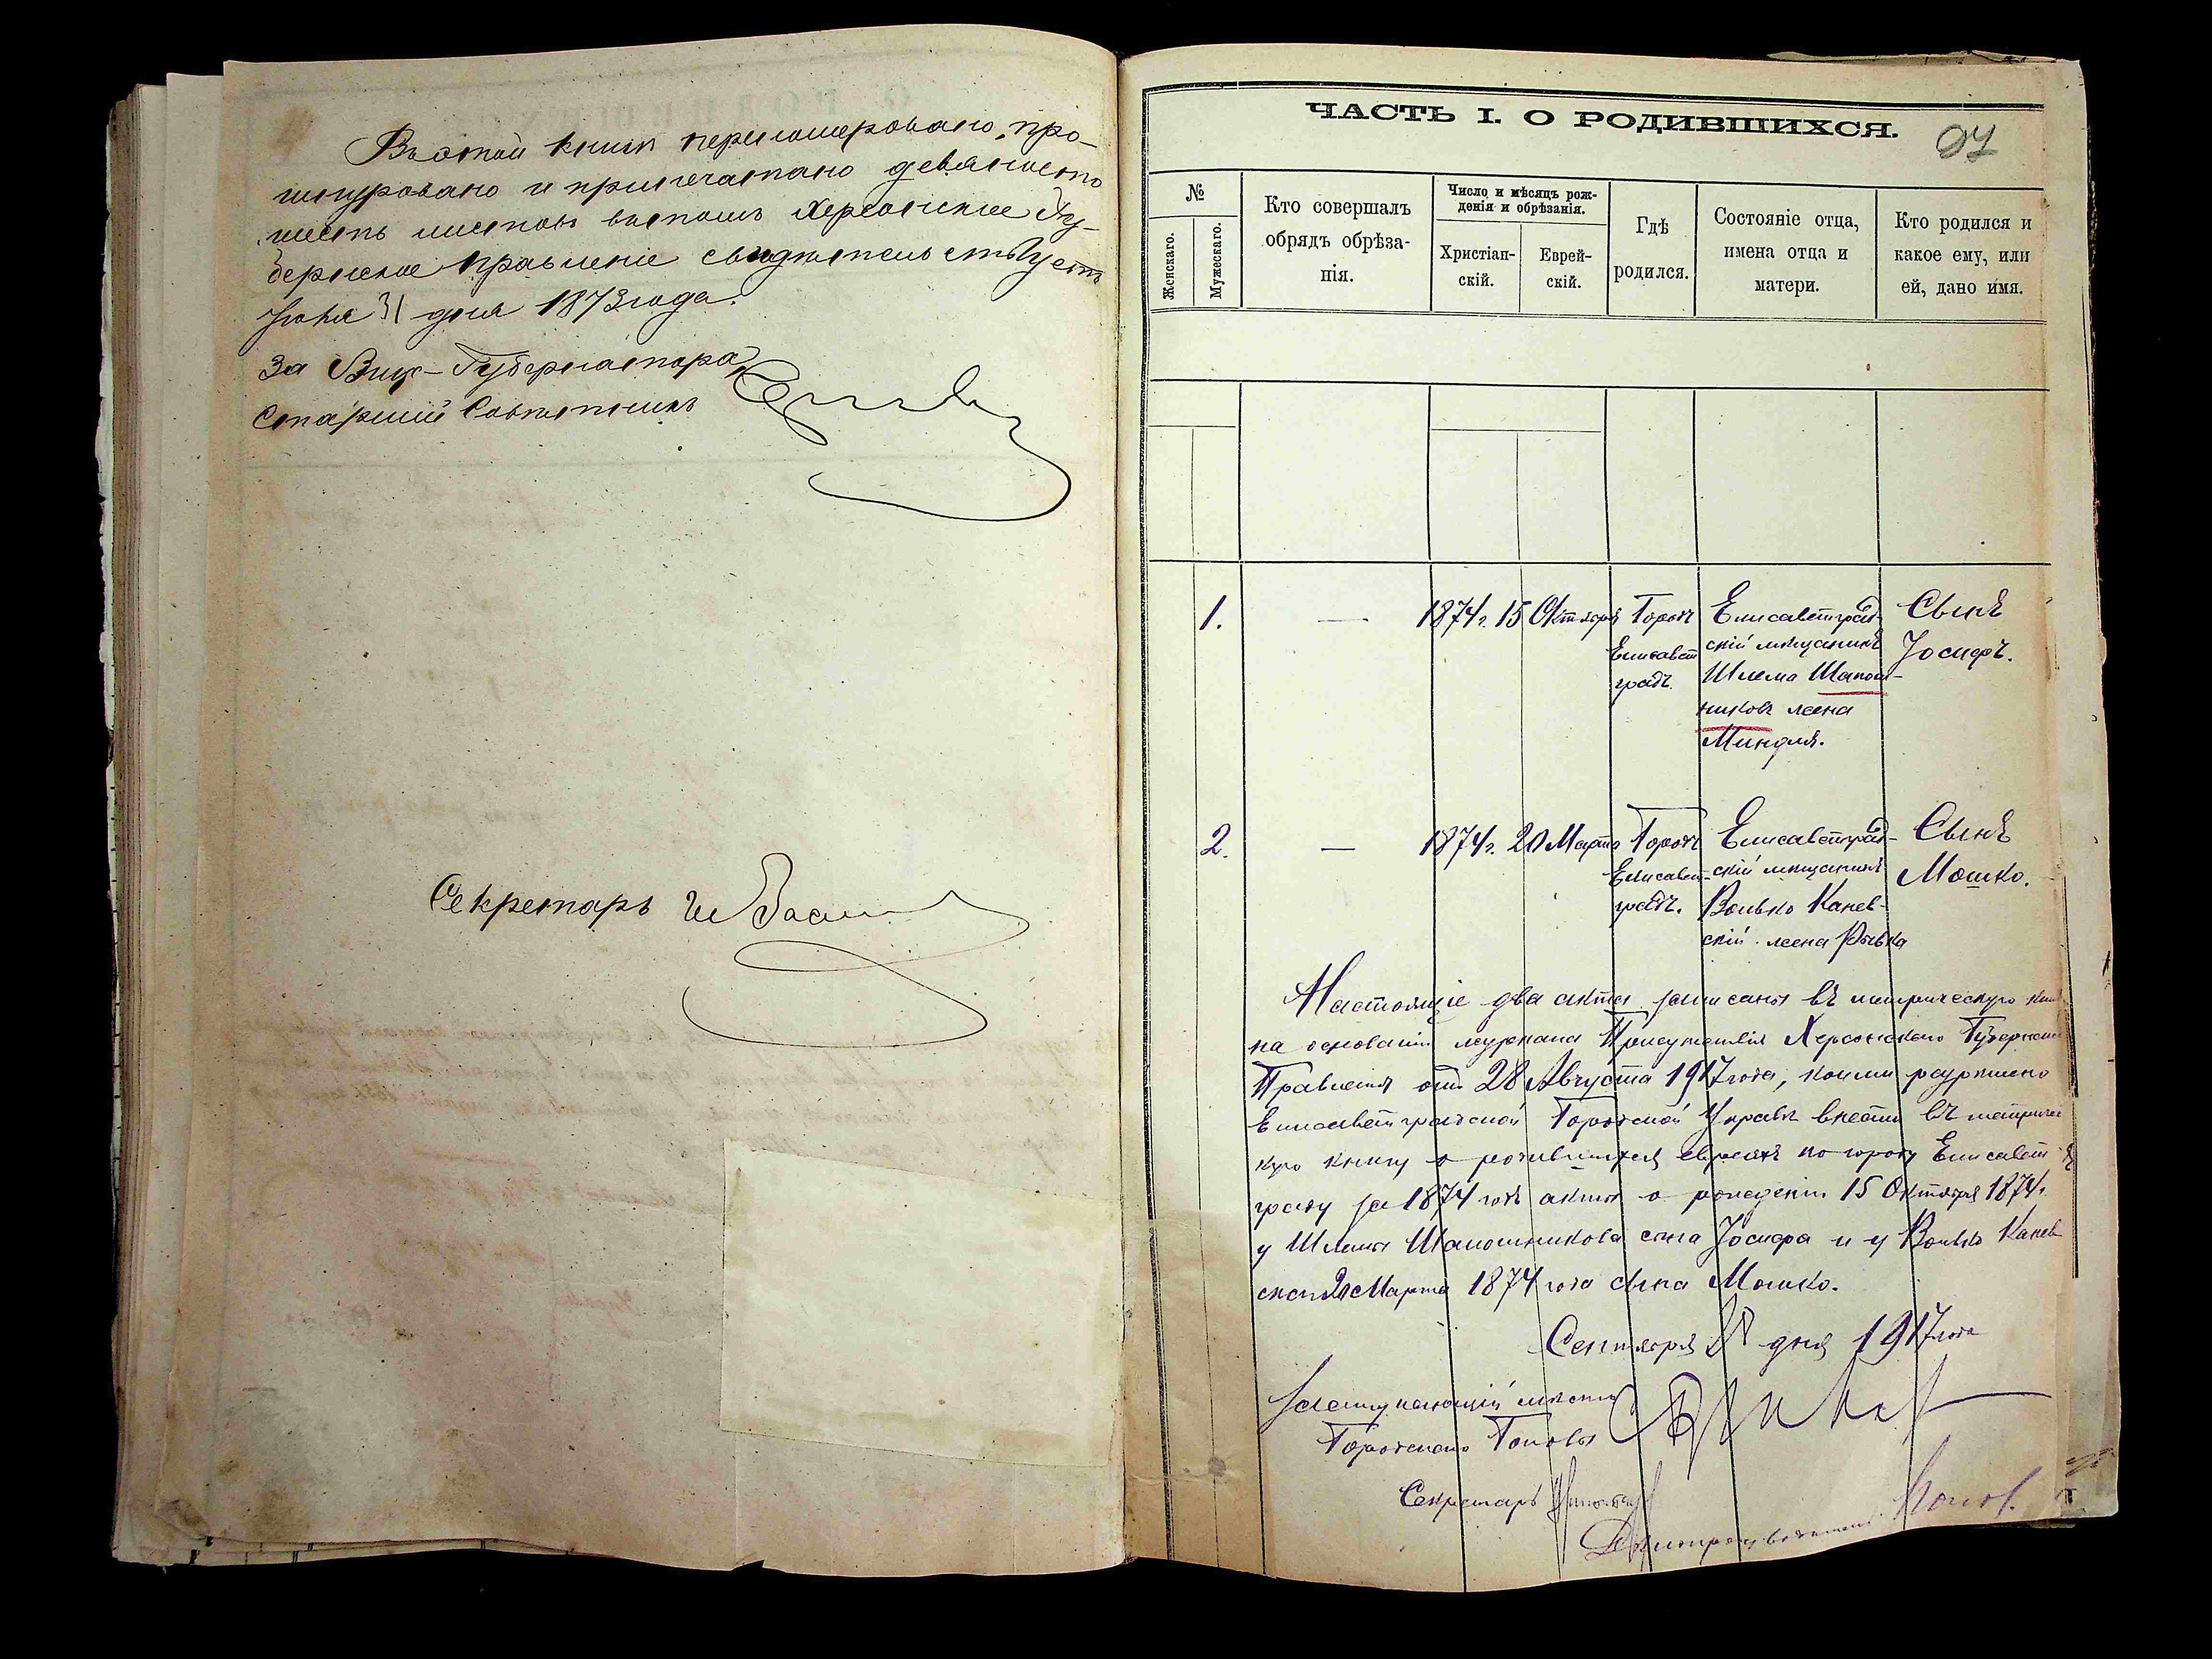 Въ этой книгѣ перенумеровано, про-
шнуровано и припечатано девяносто
шесть листовъ въ томъ Херсонское Гу-
бернское Правленіе свидѣтельствуетъ
31 дня 1873 года.
За Вице-Губернатора,
Старшій Совѣтникъ
Секретарь
ЧАСТЬ I. О РОДИВШИХСЯ.
97
№
Женскаго.
Мужескаго.
Кто совершалъ
обрядъ обрѣза-
нія.
Число и мѣсяцъ рож-
денія и обрѣзанія.
Христіан-
скій.
Еврей-
скій.
Гдѣ
родился.
Состояніе отца,
имена отца и
матери.
Кто родился и
какое ему, или
ей, дано имя.
1.
—
1874 г. 15 Октября
Городъ
Елисавет
градъ.
Елисаветград-
скій мѣщанинъ
Шлема Шапош-
никовъ жена
Миндля.
Сынъ
Іосифъ.
2.
—
1874 г. 20 Марта
Городъ
Елисавет-
градъ.
Елисаветград-
скій мѣщанинъ
Волько Канев-
скій жена Рывка
Сынъ
Мошко.
Настоящіе два акта записаны въ метрическую
на основаніи журнала Присутствія Херсонскаго
Правленія отъ 28 Августа 1917 года, коимъ разрѣшено
Елисаветградской Городской Управѣ внести въ метричес
кую книгу о родившихся евреяхъ по городу Елисавет
граду за 1874 годъ акты о рожденіи 15 Октября 1874 г.
у Шлемы Шапошникова сына Іосифа и у Волько Канев
20 Марта 1874 года сына Мошко.
Сентября дня 1917 года
Заступающій мѣсто
Городского Головы
Секретарь
Дѣлопроизводитель